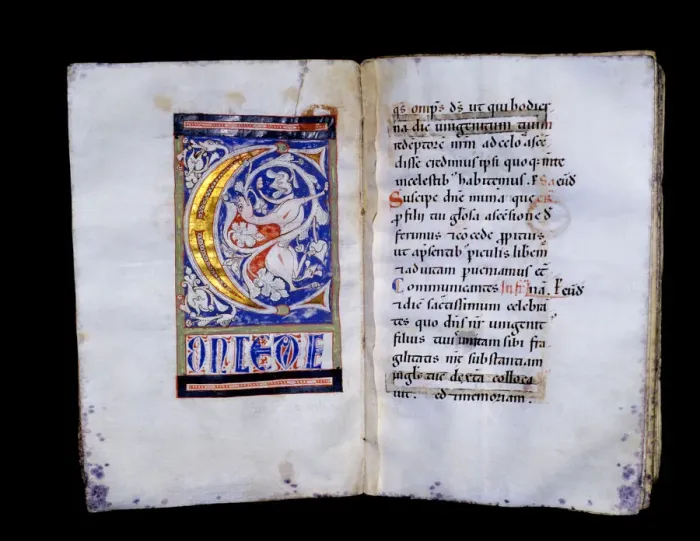 CONCEDE
qs omps ds ut qui hodier
na die unigenitum tuum
redēptorē nrm ad celos ascē
disse credimus ipsi quoq; mte
in celestib; habitemus.
Suscipe dne munera que
p filii tui glosa ascēsione d
ferimus ⁊ cōcede ppitius
ut a psentib; piculis liberem
⁊ ad uitam pueniamus et
Communicantes
⁊ die sacratissimum celebra
tes quo dns nr unigenit
filius tuus unitam sibi fra
gilitatis nre substantiam
gle tue dextra colloca
uit. ed ⁊ memoriam.